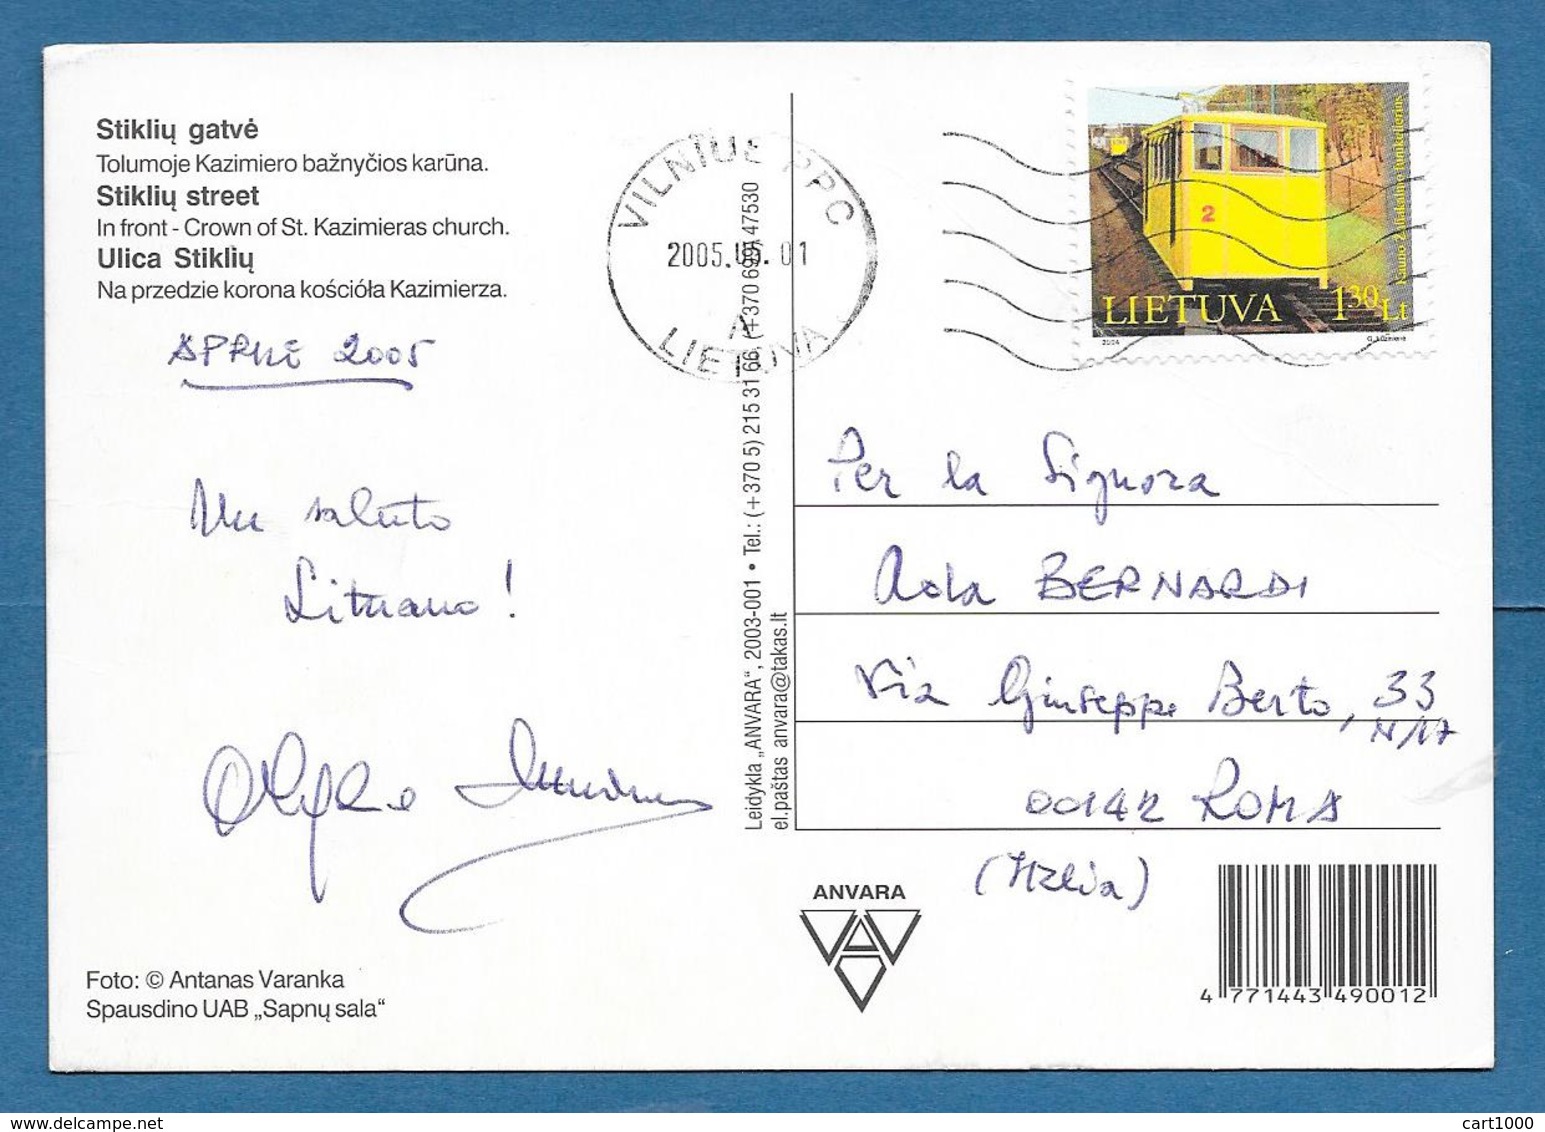 Stiklių gatvė
Tolumoje Kazimiero bažnyčios karūna.
Stiklių street
In front - Crown of St. Kazimieras church.
Ulica Stiklių
Na przedzie korona kościóła Kazimierza.
APRILE 2005
Un saluto
Lituano!
Foto: © Antanas Varanka
Spausdino UAB „Sapnų sala“
VILNIUS PPC
2005. 01
A
LIETUVA
Leidykla „ANVARA“, 2003-001 • Tel.: (+370 5) 215 31 66, (+370 47530
el.paštas anvara@takas.lt
LIETUVA 130 Lt
2
2004
Per la Signora
Ada BERNARDI
Via Giuseppe Berto, 33
N/17
00142 ROMA
(Italia)
ANVARA
4 771443 490012
www.delcampe.net
cart1000